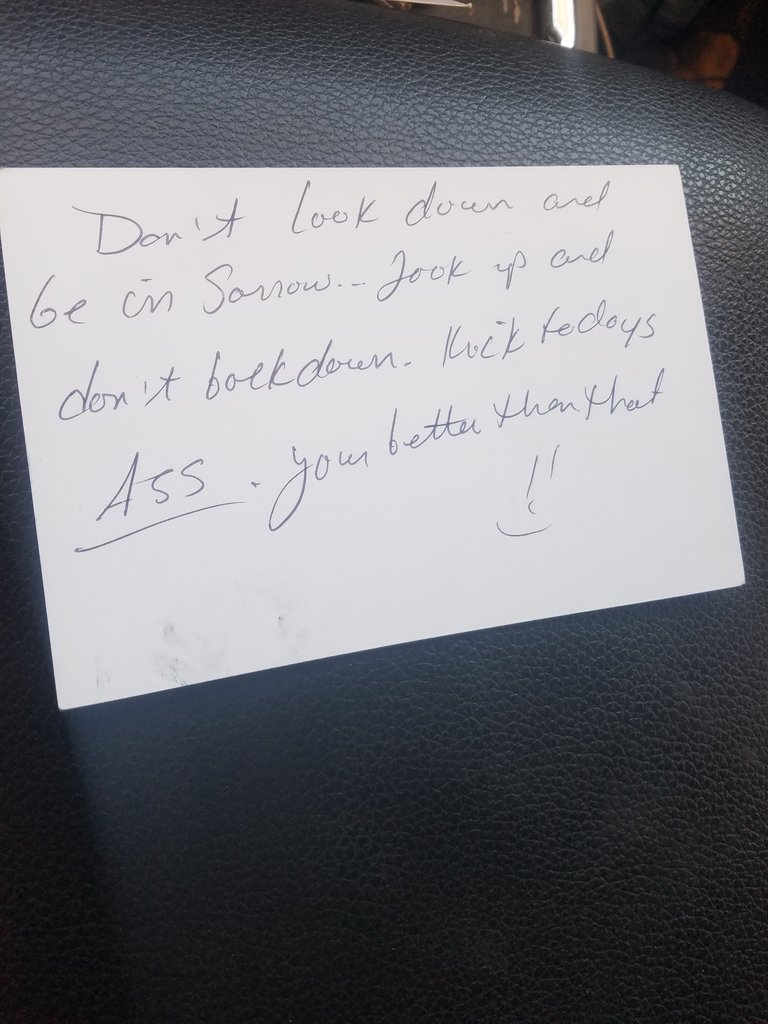 Don't look down and
be in Sorrow... Look up and
don't back down. Kick todays
ASS. your better than that
!!